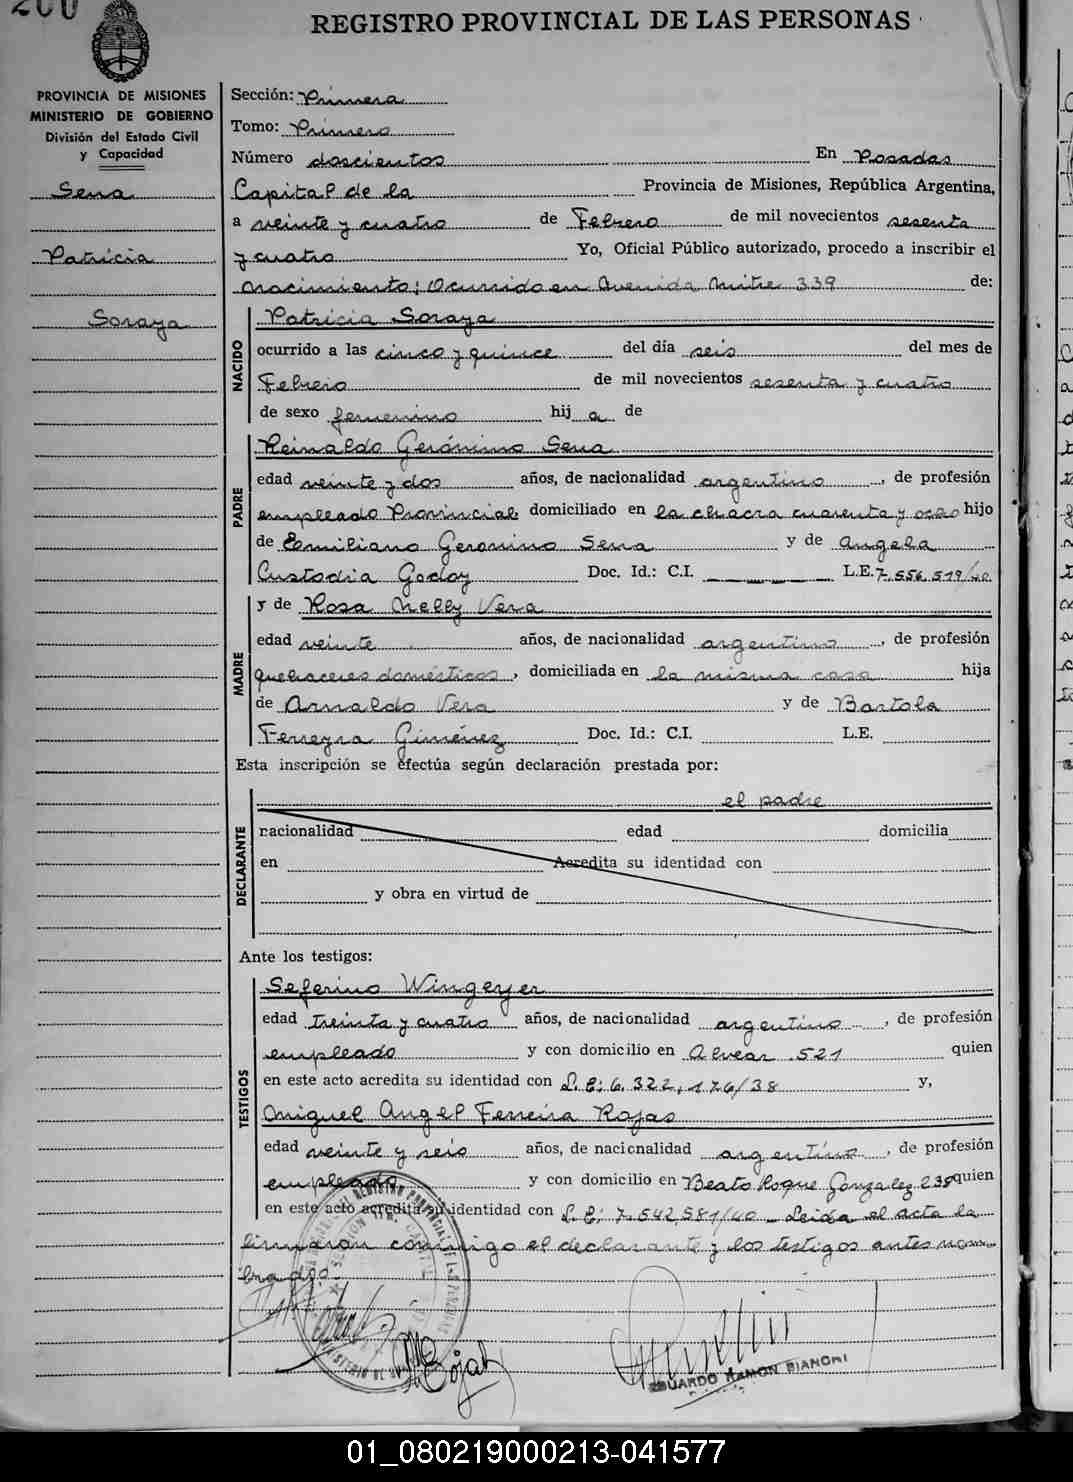 200
REGISTRO PROVINCIAL DE LAS PERSONAS
PROVINCIA DE MISIONES
MINISTERIO DE GOBIERNO
División del Estado Civil
y Capacidad
Sena
Patricia
Soraya
Sección: Primera
Tomo: Primero
Número doscientos En Posadas
Capital de la Provincia de Misiones, República Argentina,
a veinte y cuatro de Febrero de mil novecientos sesenta
y cuatro Yo, Oficial Público autorizado, procedo a inscribir el
nacimiento; Ocurrido en Avenida Mitre 339 de:
NACIDO
Patricia Soraya
ocurrido a las cinco y quince del día seis del mes de
Febrero de mil novecientos sesenta y cuatro
de sexo femenino hij a de
PADRE
Reinaldo Gerónimo Sena
edad veinte y dos años, de nacionalidad argentino, de profesión
empleado Provincial domiciliado en la chacra cuarenta y ocho hijo
de Emiliano Geronimo Sena y de Angela
Custodia Godoy Doc. Id.: C.I. L.E. 7.556.519/40
MADRE
y de Rosa Nelly Vera
edad veinte años, de nacionalidad argentino, de profesión
quehaceres domésticos, domiciliada en la misma casa hija
de Arnaldo Vera y de Bartola
Ferreyra Giménez Doc. Id.: C.I. L.E.
Esta inscripción se efectúa según declaración prestada por:
DECLARANTE
el padre
nacionalidad edad domicilia
en Acredita su identidad con
y obra en virtud de
Ante los testigos:
TESTIGOS
Seferino Wingeyer
edad treinta y cuatro años, de nacionalidad argentino, de profesión
empleado y con domicilio en Alvear 521 quien
en este acto acredita su identidad con L.E: 6.322.176/38 y,
Miguel Angel Ferreira Rojas
edad veinte y seis años, de nacionalidad argentino, de profesión
empleado y con domicilio en Beato Roque Gonzalez 238 quien
en este acto acredita su identidad con L.E: 7.542.581/40 - Leida el acta la
firmaron conmigo el declarante y los testigos antes nom-
brados.
EDUARDO RAMON BIANCHI
01_080219000213-041577